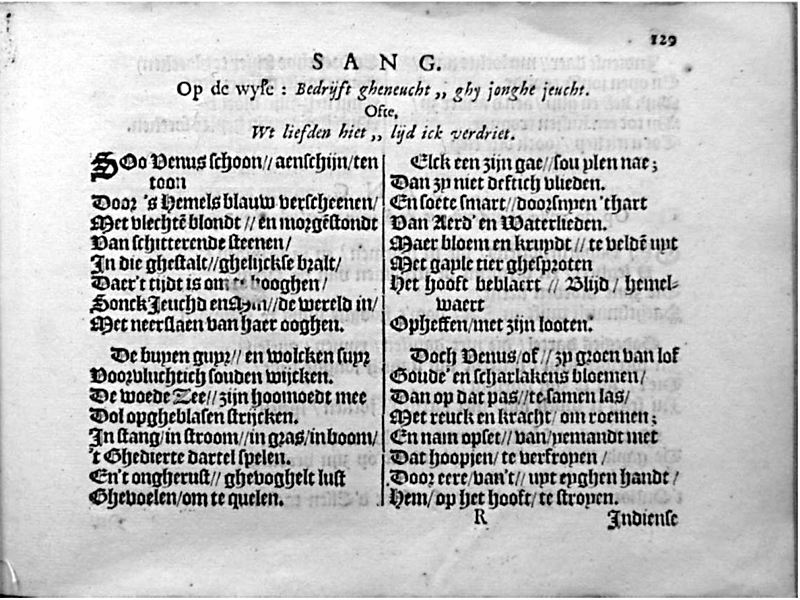 129
SANG.
Op de wyse : Bedrijft gheneucht,, ghy jonghe jeucht.
Ofte,
Wt liefden siet,, lijd ick verdriet.
SOo Venus schoon// aenschijn/ten
toon
Door 's Hemels blauw verscheenen/
Met vlechtē blondt // en morgēstondt
Van schitterende steenen/
In die ghestalt//ghelijckse bralt/
Daer't tijdt is om te hooghen/
Sonck Jeuchd en //de wereld in/
Met neerslaen van haer ooghen.
De buyen guyr// en wolcken suyr
Voorvluchtich souden wijcken.
De woede Zee// zijn hoomoedt mee
Dol opgheblasen strijcken.
In stang/in stroom//in gras/in boom/
't Ghedierte dartel spelen.
En't ongherust// ghevoghelt lust
Ghevoelen/om te quelen.
Elck een zijn gae//sou plen nae;
Dan zy niet deftich vlieden.
En soete smart//doorsnyen 'thart
Van Aerd' en Waterlieden.
Maer bloem en kruydt // te veldē uyt
Met gayle tier ghesproten
Het hooft beblaert // Blijd / hemel-
waert
Opheffen/met zijn looten.
Doch Venus/of// zy groen van lof
Goude' en scharlakens bloemen/
Dan op dat pas//te samen las/
Met reuck en kracht/ om roemen;
En nam opset// van/yemandt met
Dat hoopjen/ te verfroyen/
Door eere/van't// uyt eyghen handt/
Hem/op het hooft/ te stroyen.
R
Indiense